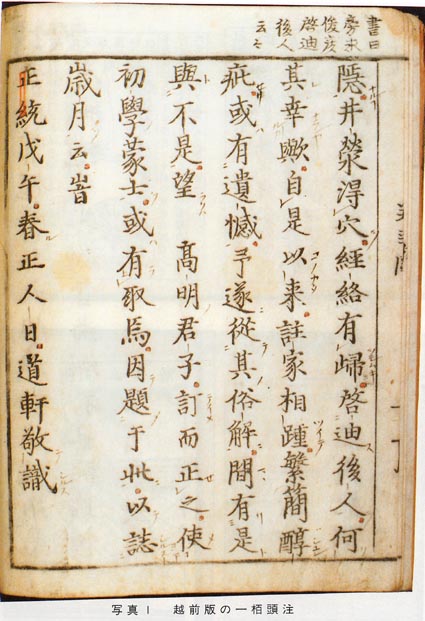 書曰
旁求
俊彦
啓迪
後人
云々
隠井滎淂穴経絡有歸啓迪後人何
其幸歟自是以来註家相踵繁蕳醇
疵或有遺憾予遂従其俗解間有是
與不是望　髙明君子訂而正之使
初學蒙士或有取焉因題于此以誌
歳月云旹
正統戊午春正人日道軒敬識
写真1　越前版の一栢頭注